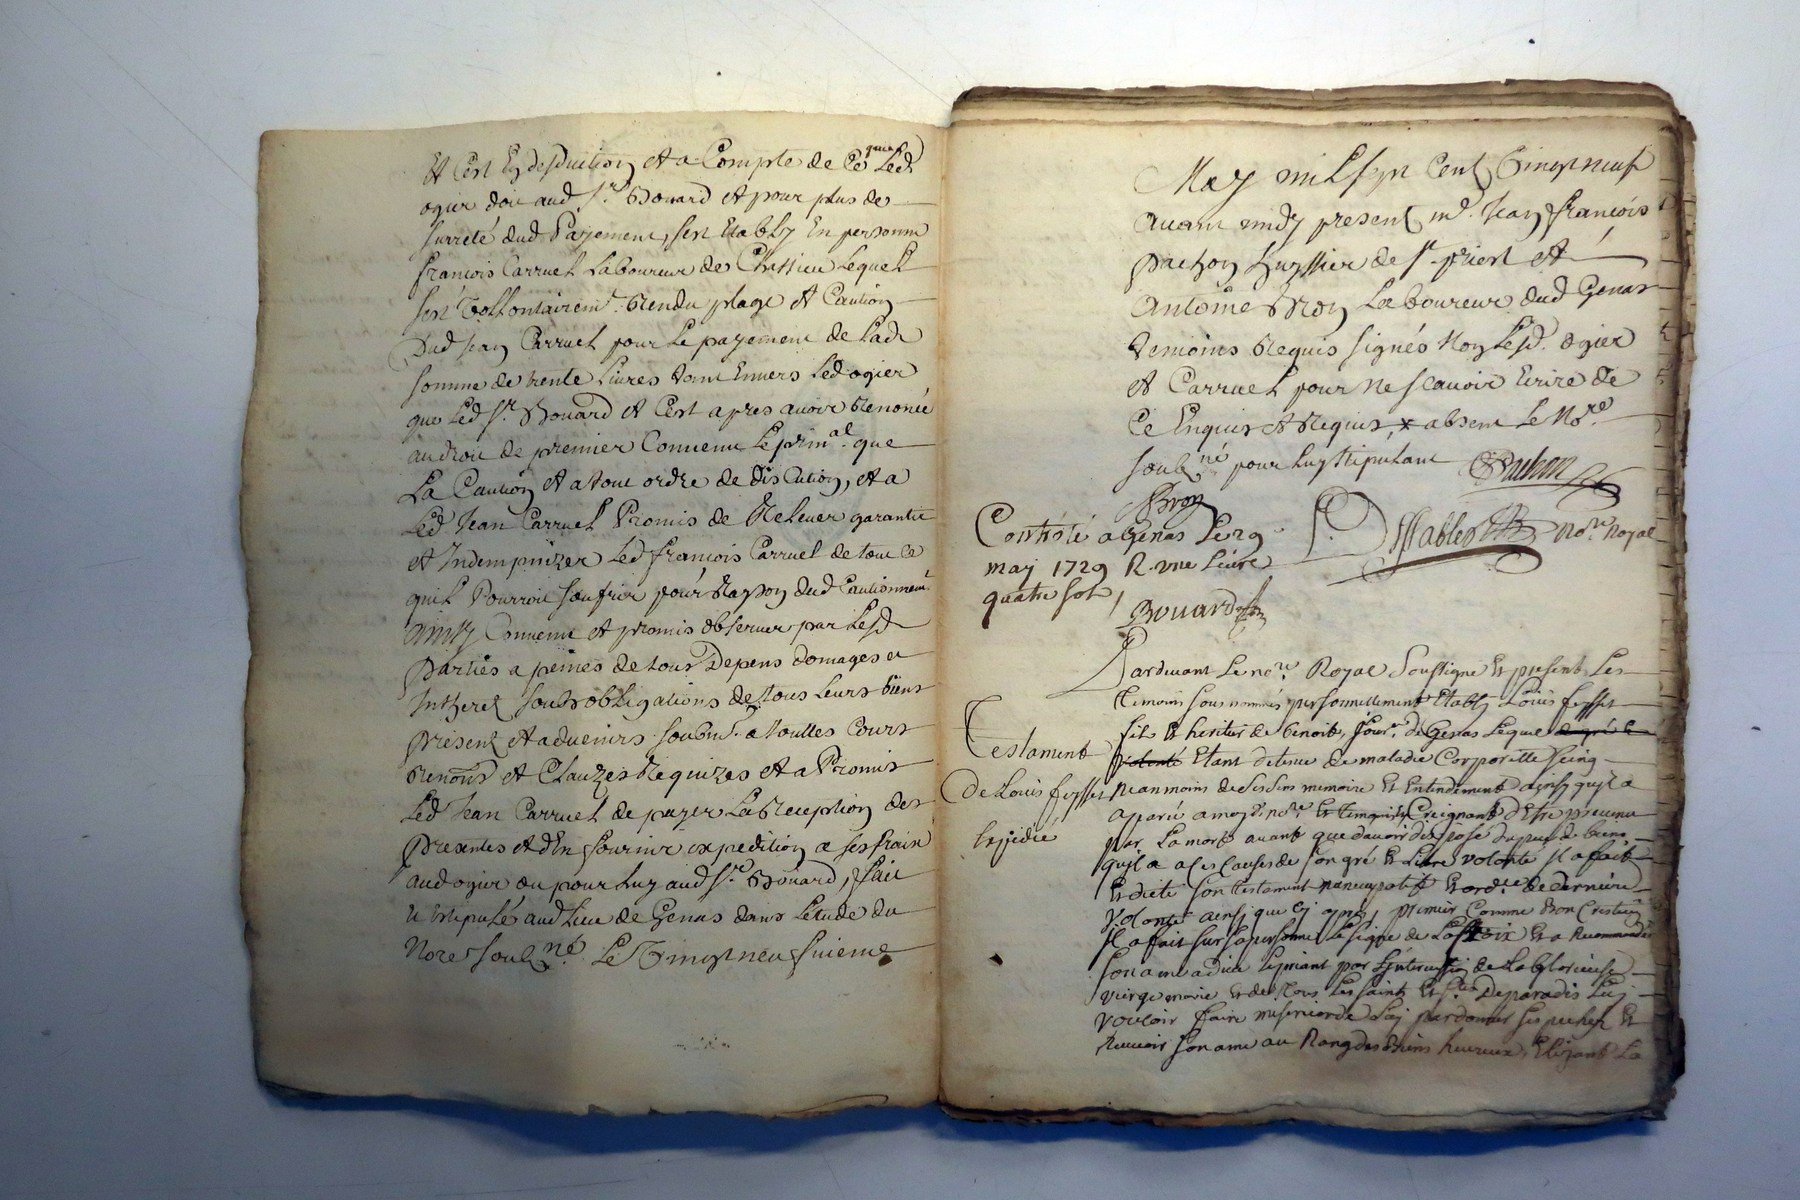 Et C'est En desduction et a Compte de Ce que Led
ogier doit aud Sr. Bouard et pour plus de
surreté dud Payement, sest Etably En personne
francois Carruel Laboureur de Chassieu Lequel
sest Vollontairemt. Rendu plage et Caution
Dud Jean Carruel pour Le payement de Lade
somme de trente Livres tant Envers Led ogier
que Led Sr. Bouard et C'est apres avoir Renoncé
au droit de premier Convenu Le prinal. que
La Caution et a tout ordre de discution, et a
Led Jean Carruel Promis de Relever garantir
et Indempnizer Led francois Carruel de tout ce
quil Pourroit soufrir pour Rayson dud Cautionnemt.
Ainsy Convenu et promis observer par Lesd
parties a peines de tous Depens domages et
Intherets soubs obligations de tous Leurs biens
presents et advenirs soubm. a touttes Cours
Renons et Clauzes Requizes et a Promis
Led Jean Carruel de payer La Reception des
presentes et d'En fournir expedition a ses frais
aud ogier ou pour Luy aud Sr. Bouard, fait
et stipulé aud Lieu de Genas dans L'etude du
Nore soubné. Le Vingt neufvieme
May mil sept Cent Vingt neuf
avant midy present me. Jean francois
pachon huyssier de St. priest et
Antoine Broy Laboureur dud Genas
temoins Requis signés Non Lesd. ogier
et Carruel pour ne scavoir Ecrire de
Ce Enquis et Requis, x absent Le Nore
soubné pour Luy stipulant Pachon
Broy
Contrôlé a Genas Le 29
may 1729 R. une Livre
quatre sols
Bouard
Nore. Royal
Pardevant Le nore. Royal Soussigne Et present Les
temoins sous nommés personnellement Etably Louis feysset
fils Et heritier de benoit, Jour. de Genas Lequel de gré Et
volonté Etant detenu de maladie Corporelle
Testament
De Louis feysset
Expedié
neanmoins de ses sens memoire Et Entendement ainsy quil a
apparu a moyd nore Et temoins Creignant D'Etre prevenu
par La mort avant que d'avoir disposé du peu de biens
quil a a ses Causes de son gré Et Libre volonté Il a fait
Et dicté son testament nuncupatif Et ordre De derniere
volonté ainsy que cy aprés, premier Comme Bon Crestien
Il a fait sur sa personne Le signe de La Croix Et a Recommandé
son ame a dieu Le priant par L'Intercession de La Glorieuse
vierge marie Et de tous Les saints Et stes De paradis Luy
vouloir faire misericorde Luy pardonner ses pechez Et
Recevoir son ame au Rang des Biens heureux, Elizant La